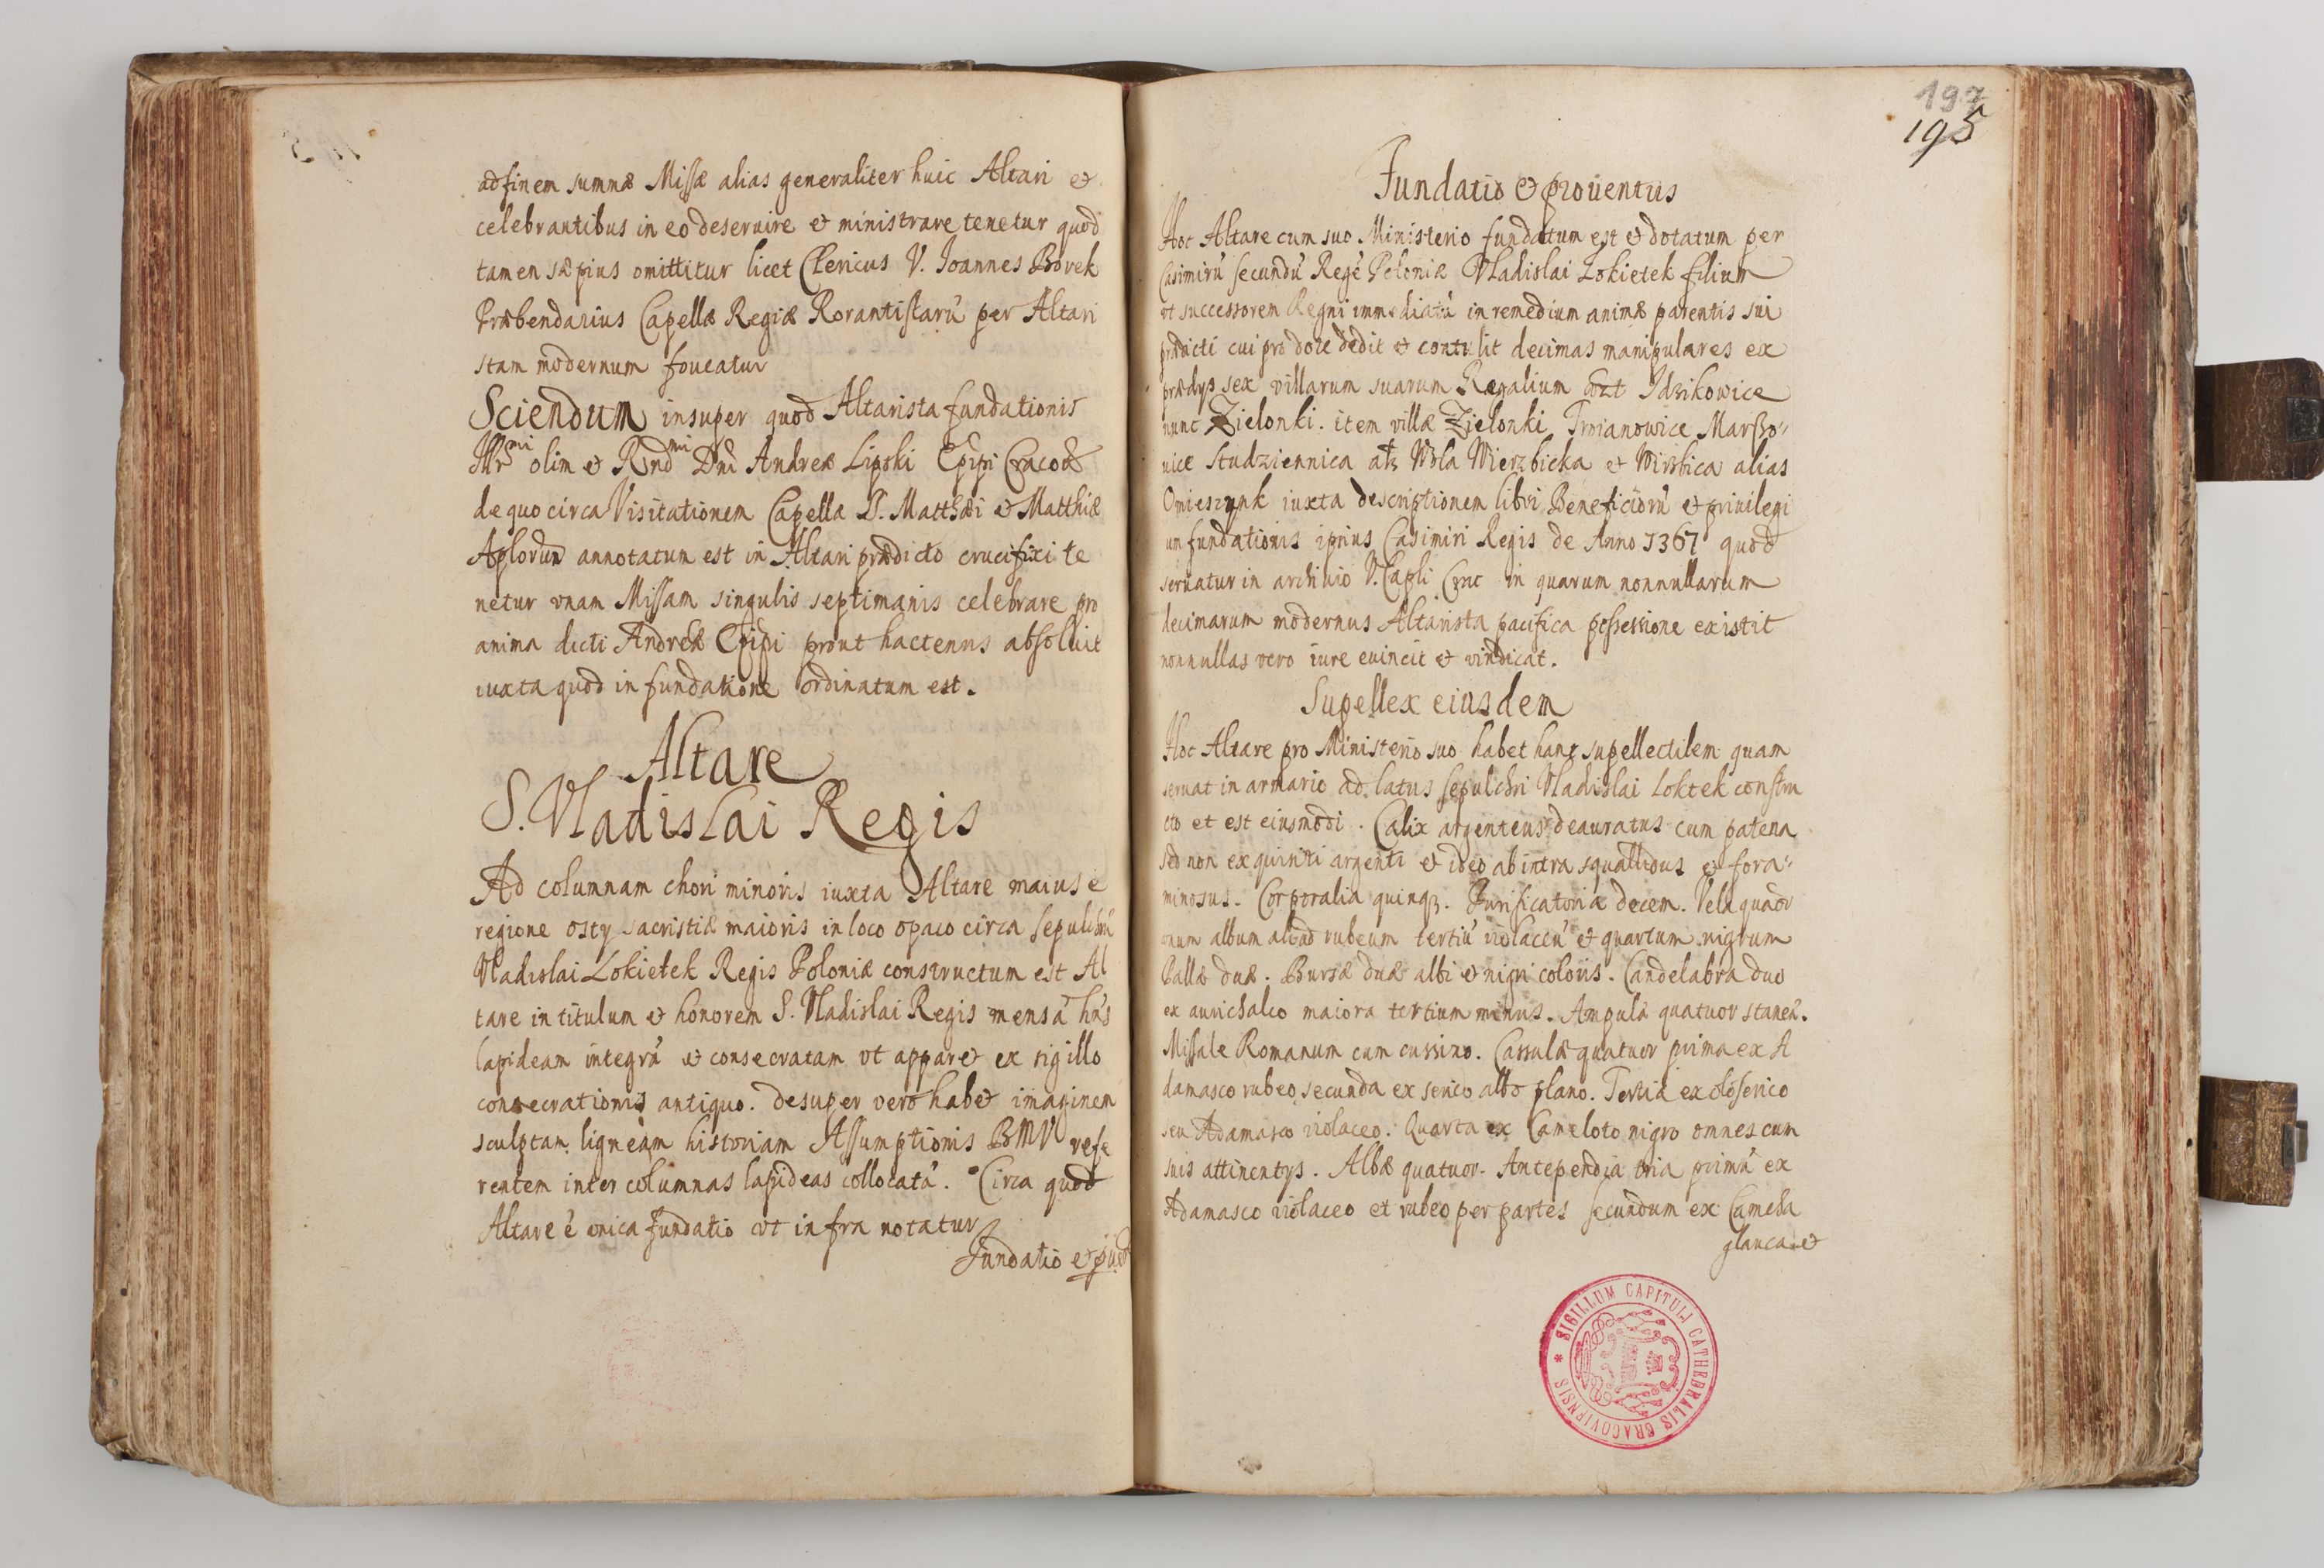 ad finem sumnæ Missæ alias generaliter huic Altari et
celebrantibus in eo deseruire et ministrare tenetur quod
tamen sæpius omittitur licet Clericus V. Joannes Borek
Præbendarius Capellæ Regiæ Rorantistarū per Altari
stam modernum foueatur
Sciendum insuper quod Altarista fundationis
Illr̄mi olim et Rndmi Dni Andreæ Lipski Epīpi Cracoū
de quo circa Visitationem Capella D. Matthæi et Matthiæ
Aplorum annotatum est in Altari prædicto crucifixi te
netur vnam Missam singulis septimanis celebrare pro
anima dicti Andreæ Epīpi prout hactenus absoluit
iuxta quod in fundatione ordinatum est.
Altare
S. Vladislai Regis
Ad columnam chori minoris iuxta Altare maius è
regione osty sacristiæ maioris in loco opaco circa sepulchrū
Vladislai Lokietek Regis Poloniæ constructum est Al
tare in titulum et honorem S. Vladislai Regis mensā hn̄s
lapideam integrā et consecratam vt apparet ex sigillo
consecrationis antiquo. desuper vero habet imaginem
sculptam ligneam historiam Assumptionis BMV refe
rentem inter columnas lapideas collocatā. Circa quod
Altare ē vnica fundatio vt infra notatur
Fundatio et
197
195
Fundatio et prouentus
Hoc Altare cum suo Ministerio fundatum est et dotatum per
Casimirū secundū Regē Poloniæ Vladislai Lokietek filium
et successorem Regni immediatū in remedium animæ parentis sui
prædicti cui pro dote dedit et contulit decimas manipulares ex
prædys sex villarum suarum Regalium Idzikowice
nunc Zielonki. item villæ Zielonki Troianowice Marszo-
uice Studziennica als Wola Wierzbicka et Wirzbica alias
Omieszynk iuxta descriptionem libri Beneficiorū et priuilegi
um fundationis ipsius Casimiri Regis de Anno 1367 quod
seruatur in archiuio V. Capli Crac in quarum nonnullarum
decimarum modernus Altarista pacifica possessione existit
nonnullas vero iure euincit et vindicat.
Supellex eiusdem
Hoc Altare pro Ministerio suo habet hanc supellectilem quam
seruat in armario ad latus sepulchri Vladislai Loktek constru
cto et est eiusmodi. Calix argenteus deauratus cum patena
sed non exquisiti argenti et ideo ab intra squallidus et fora-
minosus. Corporalia quinqȝ. Purificatoria decem. Vela quatuor
vnum album aliud rubeum tertiū violaceū et quartum nigrum
Pallæ duæ. Bursæ duæ albi et nigri coloris. Candelabra duo
ex aurichalco maiora tertium minus. Ampulæ quatuor staneæ.
Missale Romanum cum cussino. Cassulæ quatuor prima ex A
damasco rubeo secunda ex serico albo plano. Tertia ex oloserico
seu Adamasco violaceo. Quarta ex Cameloto nigro omnes cum
suis attinentys. Albæ quatuor. Antependia tria primū ex
Adamasco violaceo et rubeo per partes secundum ex Camcha
glauca et
* SIGILLUM CAPITULI CATHEDRALIS CRACOVIENSIS